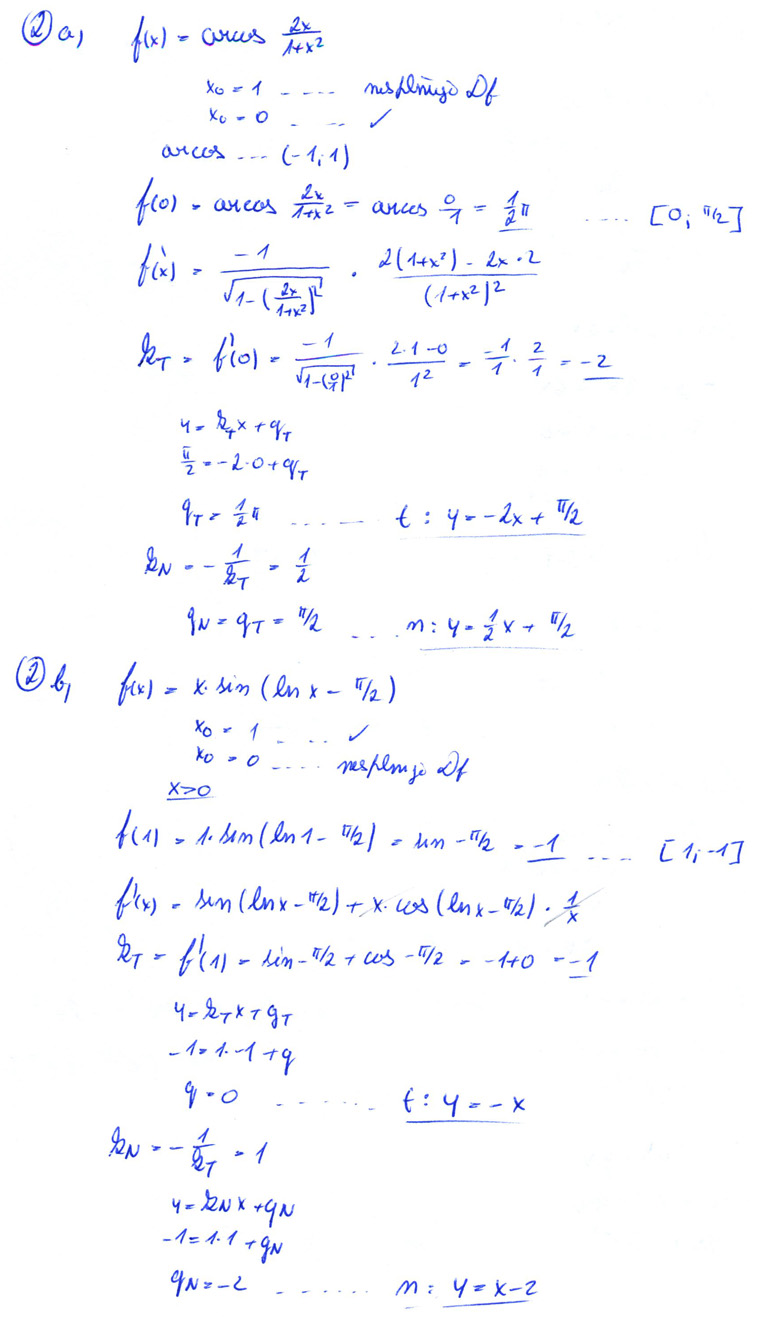 ② a, f(x) = arccos 2x/(1+x²)
x₀ = 1 ..... nesplňuje Df
x₀ = 0 ..... ✓
arcos ... (-1; 1)
f(0) = arccos 2x/(1+x²) = arccos 0/1 = 1/2 π .... [0; π/2]
f'(x) = -1/√(1-(2x/(1+x²))²) · (2(1+x²) - 2x·2)/(1+x²)²
k_T = f'(0) = -1/√(1-(0/1)²) · (2·1-0)/1² = -1/1 · 2/1 = -2
y = k_T x + q_T
π/2 = -2·0 + q_T
q_T = 1/2 π ...... t: y = -2x + π/2
k_N = - 1/k_T = 1/2
q_N = q_T = π/2 .... n: y = 1/2 x + π/2
② b, f(x) = x · sin (ln x - π/2)
x₀ = 1 .... ✓
x₀ = 0 ..... nesplnuje Df
x>0
f(1) = 1· sin (ln 1 - π/2) = sin -π/2 = -1 .... [1; -1]
f'(x) = sin (ln x - π/2) + x · cos (ln x - π/2) · 1/x
k_T = f'(1) = sin -π/2 + cos -π/2 = -1+0 = -1
y = k_T x + q_T
-1 = 1·-1 + q
q = 0 ........ t: y = -x
k_N = - 1/k_T = 1
y = k_N x + q_N
-1 = 1·1 + q_N
q_N = -2 ........ n: y = x-2